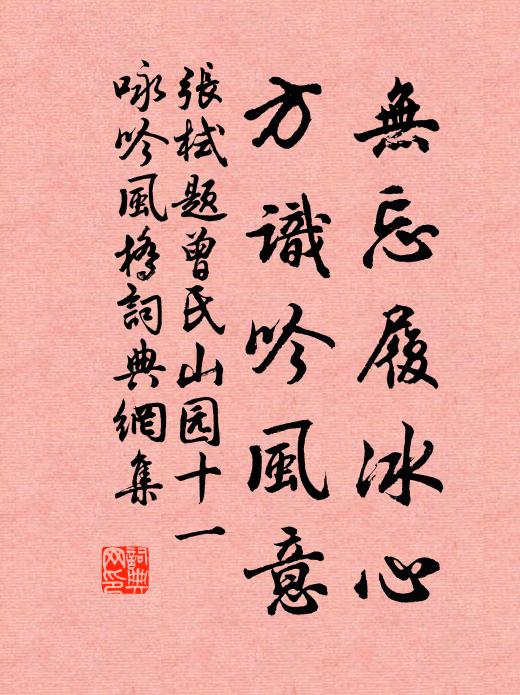 無忘履冰心
方識吟風意
張栻題曾氏山园十一
咏吟風橋詞典網集
詞典网印